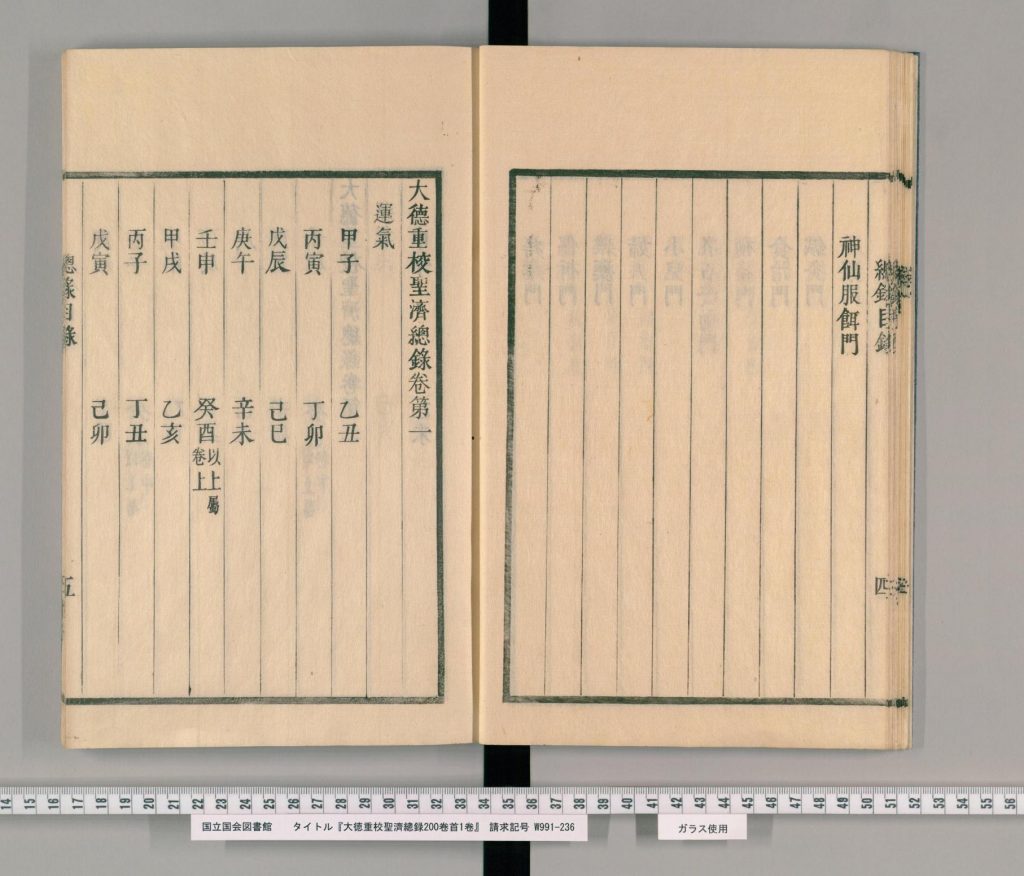 總錄目錄 四
神仙服餌門
大德重校聖濟總錄卷第
運氣
甲子 乙丑
丙寅 丁卯
戊辰 己巳
庚午 辛未
壬申 癸酉 以上屬卷上
甲戌 乙亥
丙子 丁丑
戊寅 己卯
總錄目錄 五
14 15 16 17 18 19 20 21 22 23 24 25 26 27 28 29 30 31 32 33 34 35 36 37 38 39 40 41 42 43 44 45 46 47 48 49 50 51 52 53 54 55 56
国立国会図書館 タイトル『大徳重校聖濟總録200卷首1卷』 請求記号 W991-236
ガラス使用